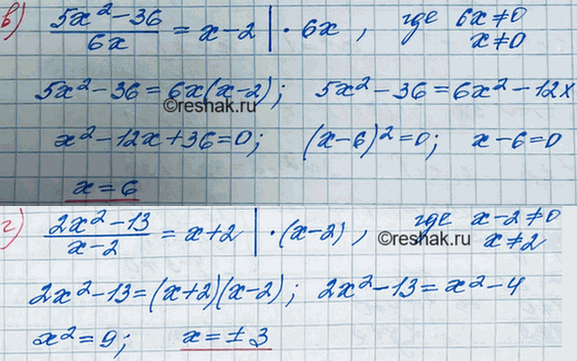 в) (5x² − 36)/(6x) = x − 2 | · 6x , где 6x ≠ 0
x ≠ 0
5x² − 36 = 6x(x − 2); 5x² − 36 = 6x² − 12x
©reshak.ru
x² − 12x + 36 = 0; (x − 6)² = 0; x − 6 = 0
x = 6
г) (2x² − 13)/(x − 2) = x + 2 | · (x − 2) , где x − 2 ≠ 0
©reshak.ru x ≠ 2
2x² − 13 = (x + 2)(x − 2); 2x² − 13 = x² − 4
x² = 9; x = ± 3